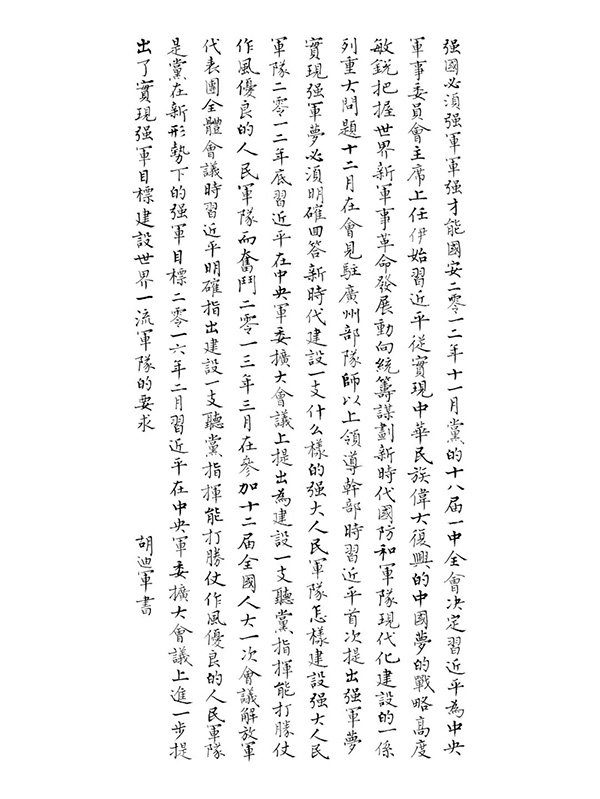 强國必須强軍軍强才能國安二零一二年十一月黨的十八届一中全會决定習近平為中央
軍事委員會主席上任伊始習近平從實現中華民族偉大復興的中國夢的戰略高度
敏鋭把握世界新軍事革命發展動向統籌謀劃新時代國防和軍隊現代化建設的一係
列重大問題十二月在會見駐廣州部隊師以上領導幹部時習近平首次提出强軍夢
實現强軍夢必須明確回答新時代建設一支什么樣的强大人民軍隊怎樣建設强大人民
軍隊二零一二年底習近平在中央軍委擴大會議上提出為建設一支聽黨指揮能打勝仗
作風優良的人民軍隊而奮鬥二零一三年三月在參加十二届全國人大一次會議解放軍
代表團全體會議時習近平明確指出建設一支聽黨指揮能打勝仗作風優良的人民軍隊
是黨在新形勢下的强軍目標二零一六年二月習近平在中央軍委擴大會議上進一步提
出了實現强軍目標建設世界一流軍隊的要求
胡迪軍書